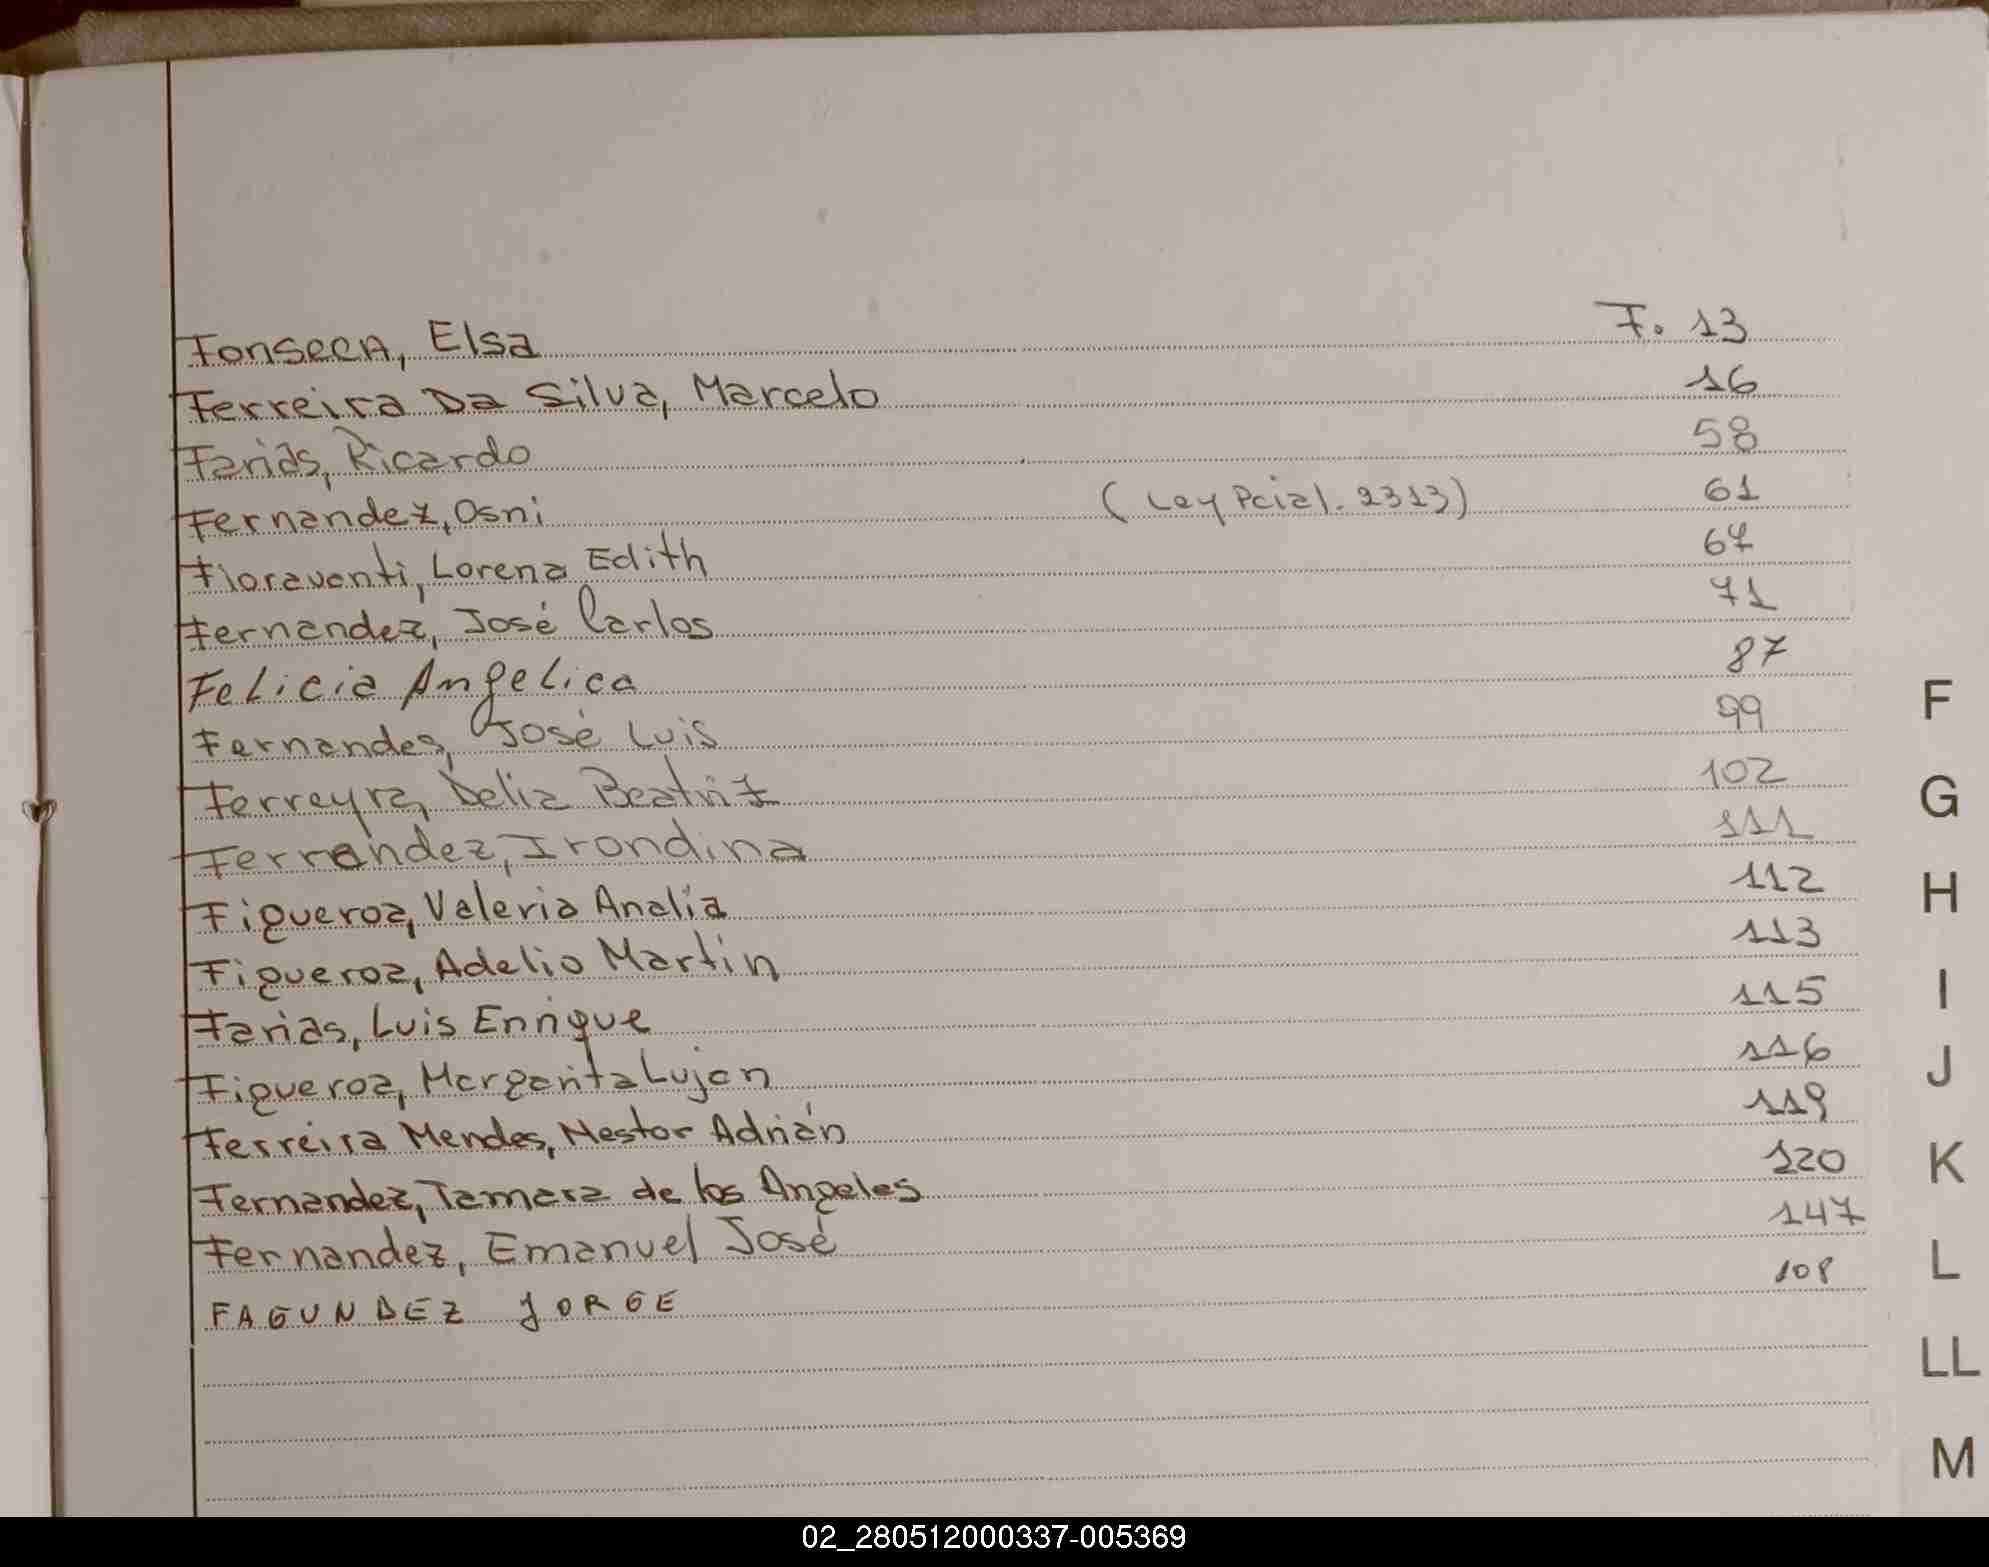 Fonseca, Elsa F. 13
Ferreira Da Silva, Marcelo 16
Farias, Ricardo 58
Fernandez, Osni (Ley Pcial. 2313) 61
Fioraventi, Lorena Edith 67
Fernandez, José Carlos 71
Felicia Angelica 87
Fernandes, José Luis 99
Ferreyra, Delia Beatriz 102
Fernandez, Irondina 111
Figueroa, Valeria Analía 112
Figueroa, Adelio Martin 113
Farias, Luis Enrique 115
Figueroa, Margarita Lujan 116
Ferreira Mendes, Nestor Adrián 119
Fernandez, Tamara de los Angeles 120
Fernandez, Emanuel José 147
FAGUNDEZ JORGE 108
F
G
H
I
J
K
L
LL
M
02_280512000337-005369